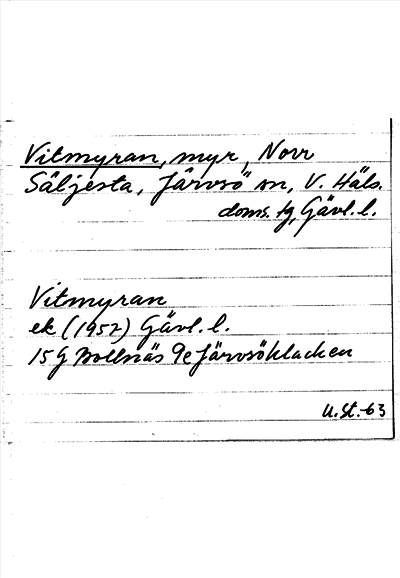 Vitmyran, myr, Norr
Säljesta, Järvsö sn, V. Häls.
doms. tg, Gävl. l.
Vitmyran
ek (1952) Gävl. l.
15G Bollnäs 9e Järvsöklacken
U.St.-63